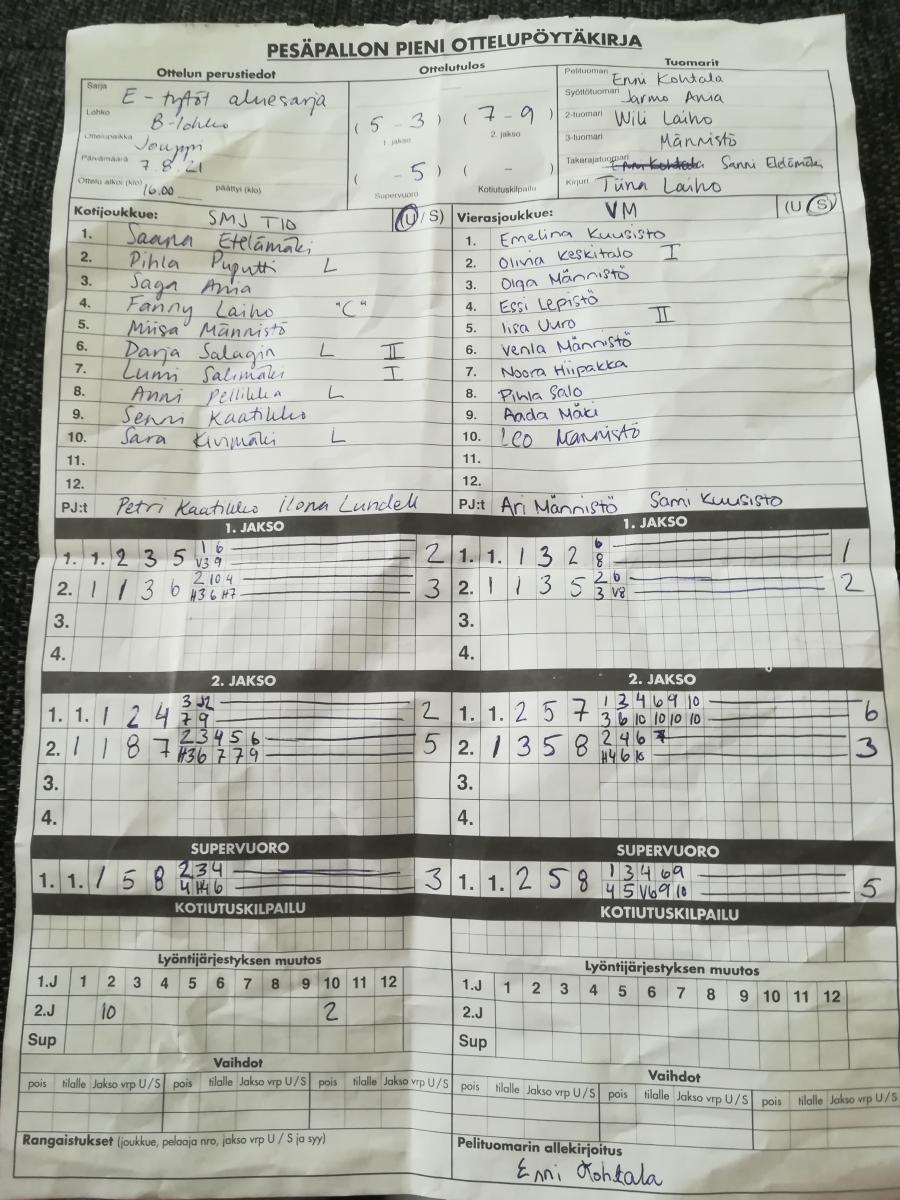 PESÄPALLON PIENI OTTELUPÖYTÄKIRJA
Ottelun perustiedot
Sarja E-tytöt aluesarja
Lohko B-lohko
Ottelupaikka Jouppi
Päivämäärä 7.8.21
Ottelu alkoi (klo) 16.00 päättyi (klo)
Ottelutulos
(5-3) (7-9)
1. jakso 2. jakso
( -5) ( - )
Supervuoro Kotiutuskilpailu
Tuomarit
Pelituomari Enni Kohtala
Syöttötuomari Jarmo Ania
2-tuomari Wili Laiho
3-tuomari Männistö
Takarajatuomari Enni Kohtala Sanni Eteldmäki
Kirjuri Tiina Laiho
Kotijoukkue: SMJ T10 (U/S)
1. Saana Etelämäki
2. Pihla Puputti L
3. Saga Ania
4. Fanny Laiho "C"
5. Miisa Männistö
6. Darja Salagin L II
7. Lumi Salimäki I
8. Anni Pellikka L
9. Senni Kaatikko
10. Sara Kivimäki L
11.
12.
PJ:t Petri Kaatikko Ilona Lundell
Vierasjoukkue: VM (U/S)
1. Emelina Kuusisto
2. Olivia Keskitalo I
3. Olga Männistö
4. Essi Lepistö
5. Iisa Uuro II
6. Venla Männistö
7. Noora Hiipakka
8. Pihla Salo
9. Aada Mäki
10. Leo Männistö
11.
12.
PJ:t Ari Männistö Sami Kuusisto
1. JAKSO
1. 1. 2 3 5 1 6 2
V3 9
2. 1 1 3 6 2 10 4 3
H3 6 H7
3.
4.
1. JAKSO
1. 1. 1 3 2 6 1
8
2. 1 1 3 5 2 6 2
3 V8
3.
4.
2. JAKSO
1. 1. 1 2 4 3 2
7 9
2. 1 1 8 7 2 3 4 5 6 5
H3 6 7 7 9
3.
4.
2. JAKSO
1. 1. 2 5 7 1 3 4 6 9 10 6
3 6 10 10 10 10
2. 1 3 5 8 2 4 6 7 3
H4 6 10
3.
4.
SUPERVUORO
1. 1. 1 5 8 2 3 4 3
4 H4 6
SUPERVUORO
1. 1. 2 5 8 1 3 4 6 9 5
4 5 V6 9 10
KOTIUTUSKILPAILU
KOTIUTUSKILPAILU
Lyöntijärjestyksen muutos
1.J 1 2 3 4 5 6 7 8 9 10 11 12
2.J 10 2
Sup
Lyöntijärjestyksen muutos
1.J 1 2 3 4 5 6 7 8 9 10 11 12
2.J
Sup
Vaihdot
pois tilalle Jakso vrp U/S pois tilalle Jakso vrp U/S pois tilalle Jakso vrp U/S
Vaihdot
pois tilalle Jakso vrp U/S pois tilalle Jakso vrp U/S pois tilalle Jakso vrp U/S
Rangaistukset (joukkue, pelaaja nro, jakso vrp U / S ja syy)
Pelituomarin allekirjoitus
Enni Kohtala